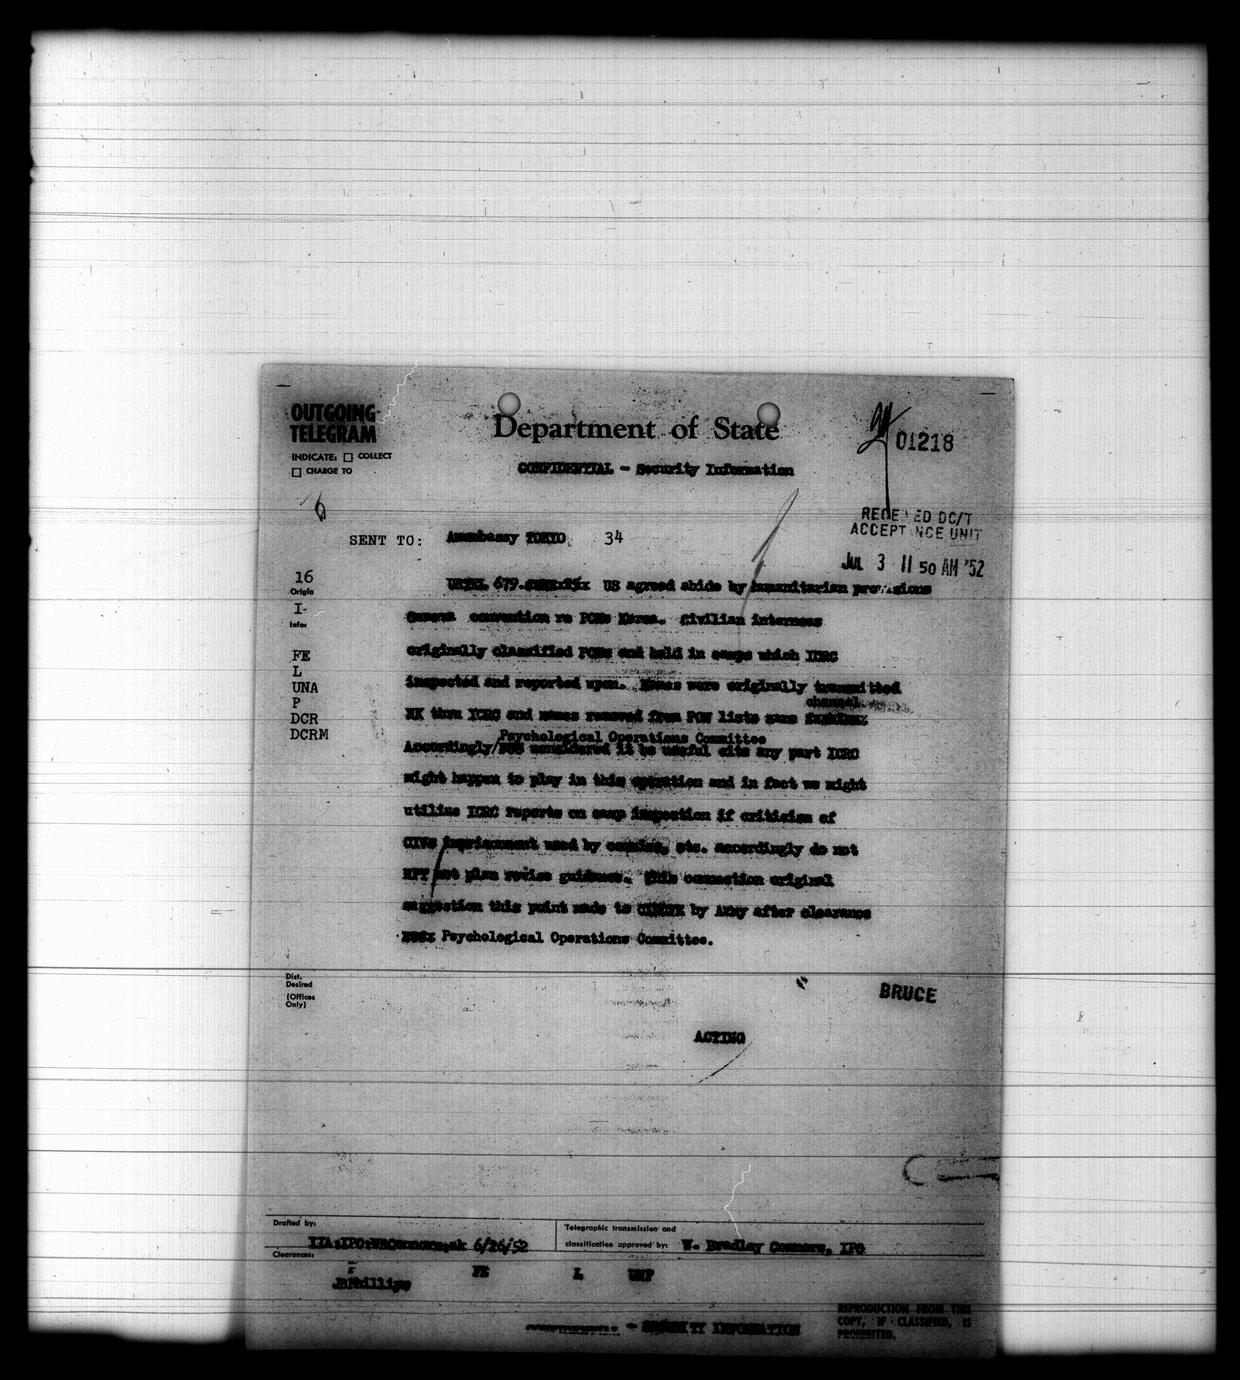 OUTGOING
TELEGRAM
INDICATE: □ COLLECT
□ CHARGE TO
Department of State
CONFIDENTIAL - Security Information
01218
ACCEPTANCE UNIT
JUL 3 11 50 AM '52
SENT TO: Amembassy TOKYO 34
16
Origin
I-
Info:
FE
L
UNA
P
DCR
DCRM
URTEL 679. US agreed abide by humanitarian provisions
Geneva convention re POWs Korea. Civilian internees
originally classified POWs and held in camps which ICRC
inspected and reported upon. Names were originally transmitted
channel.
NK thru ICRC and names removed from POW lists same
Psychological Operations Committee
Accordingly/ considered it be useful cite any part ICRC
might happen to play in this operation and in fact we might
utilize ICRC reports on camp inspection if criticism of
CIVs imprisonment used by commies, etc. Accordingly do not
not plan revise guidance. This connection original
suggestion this point made to by Army after clearance
Psychological Operations Committee.
Dist.
Desired
(Offices
Only)
BRUCE
ACTING
Drafted by:
IIA:IPO:WBConnors 6/26/52
Telegraphic transmission and
classification approved by: W. Bradley Connors, IPO
Clearances:
FE L UNP
JBPhillips
- SECURITY INFORMATION
REPRODUCTION FROM THIS
COPY, IF CLASSIFIED, IS
PROHIBITED.